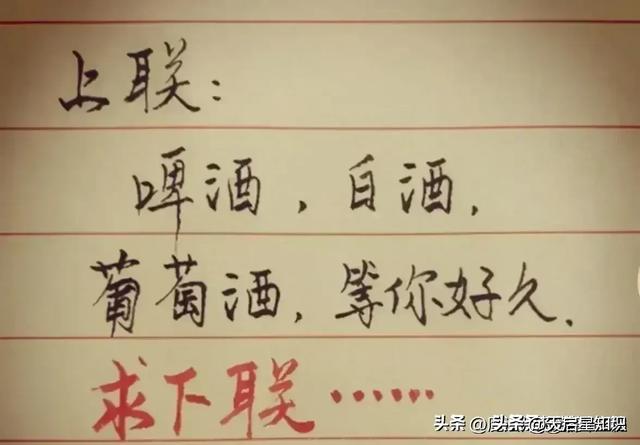 上联：
啤酒，白酒，
葡萄酒，等你好久．
求下联……